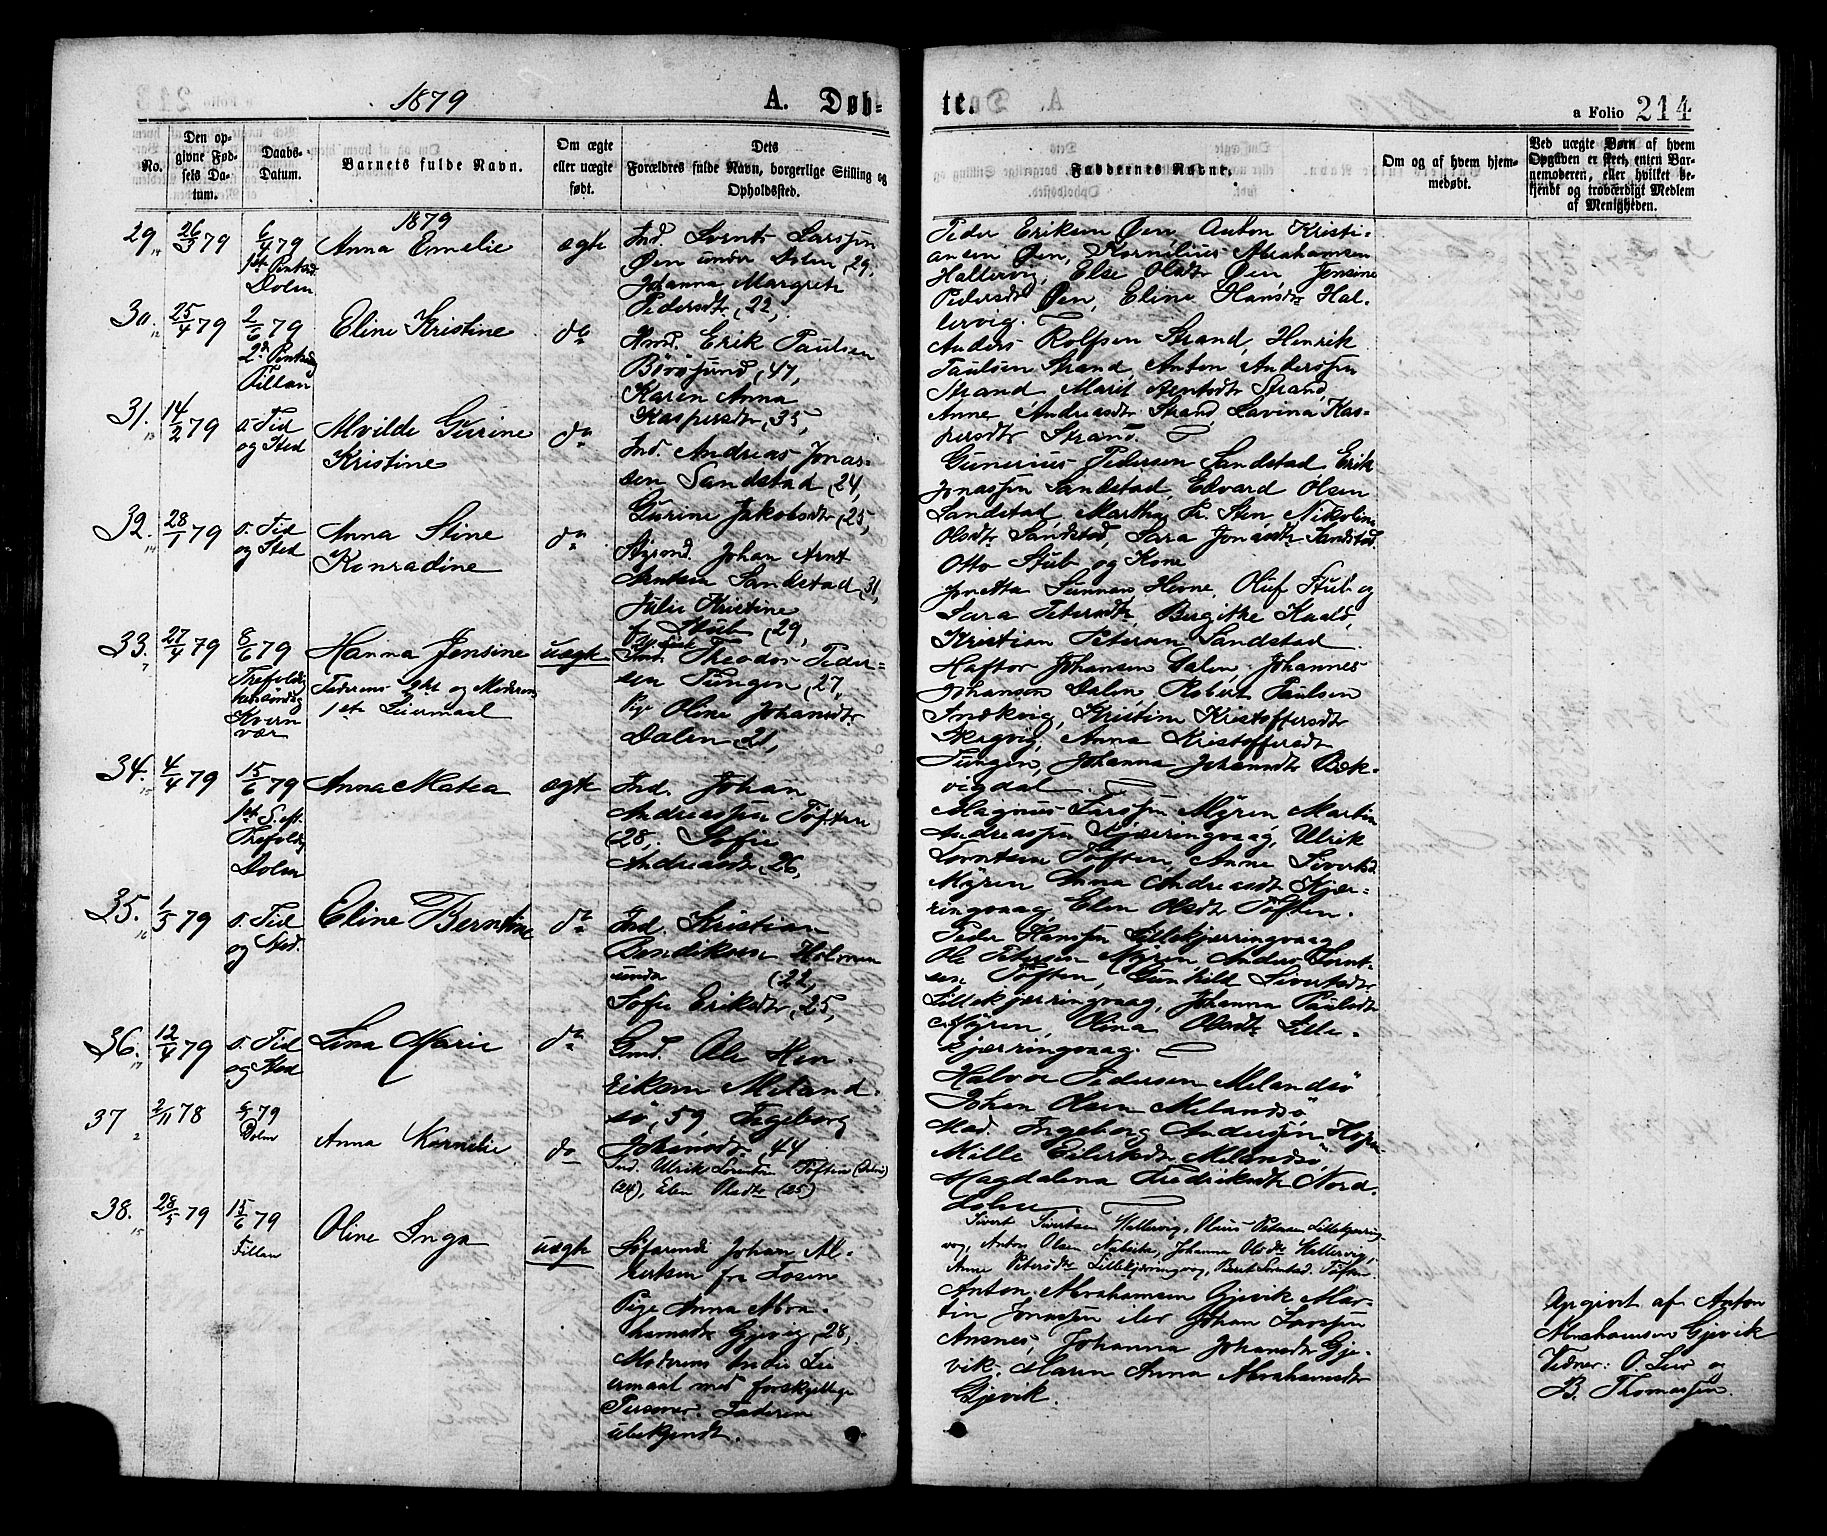 1879
A. Døb-
te.
a Folio 214
No.
Den op-
givne Fød-
sels Da-
tum.
Daabs-
Datum.
Barnets fulde Navn.
Om ægte
eller uægte
født.
Dets
Forældres fulde Navn, borgerlige Stilling og
Opholdssted.
Faddernes Navne.
Om og af hvem hjem-
medøbt.
Ved uægte Børn af hvem
Opgiven er skeet, enten Bar-
nemoderen, eller hvilket be-
kjendt og troværdigt Medlem
af Menigheden.
1879
29
26/3 79
6/4 79
Dolm
Anna Emelie
ægte
Ind. Larssen
Øen under Dolm, 29,
Johanna Margreth
Pedersdtr, 22,
Peder Eriksen Øen, Anton Kristi-
ansen Øen, Kornelius Abrahamsen
Hallervig, Else Olsdtr Øen, Jensine
Pedersdtr Øen, Eline Hansdtr Hal-
lervig.
30.
25/4 79
2/6 79
Fillan
Eline Kristine
do
Erik Paulsen
Børøsund, 47,
Karen Anna
Kaspersdtr, 35,
Anders Rolfsen Strand, Henrik
Paulsen Strand, Anton Anderssen
Strand, Marit Strand,
Anne Andreasdtr Strand, Lavina Kas-
persdtr Strand.
31.
14/2 79
s. Tid
og Sted
Alvilde Gurine
Kristine
do
Ind. Andreas Jonas-
sen Sandstad, 24,
Gurine Jakobsdtr, 25,
Gunerius Pedersen Sandstad, Erik
Jonassen Sandstad, Edvard Olsen
Sandstad, Martha Nikoline
Olsdtr Sandstad, Sara Jonasdtr Sandstad.
32.
28/1 79
s. Tid
og Sted
Anna Stine
Konradine
do
Johan Arnt
Sandstad, 31,
Julie Kristine
f. Stub, 29,
Otto Stub og Kone
Jonetta Hevne, Oluf Stub og
Sara Petersdtr, Bergitte
Kristian Petersen Sandstad.
33.
27/4 79
8/6 79
Kvern
vær
Hanna Jensine
Faderens 2det og Moderens
1ste Leiermaal
uægte
Ind. Theodor Peder-
sen Tungen, 27,
Pige Oline Johansdtr
Dalen, 21,
Haftor Johansen Dalen, Johannes
Johansen Dalen, Robert Paulsen
Kristine Kristoffersdtr
Anna Kristoffersdtr
Tungen, Johanna Johansdtr Bek-
vigdal.
34.
4/4 79
15/6 79
1st S. eft.
Trefoldig
Dolm
Anna Matea
ægte
Ind. Johan
Andreassen Toften
(28, Sofie
Andreasdtr, 26,
Magnus Larssen Myren, Martin
Andreassen Kjærringvaag, Ulrik
Lorntsen Toften, Anne Sivertsd.
Myren, Anna Andreasdtr Kjær-
ringvaag, Elen Olsdtr Toften.
35.
1/5 79
s. Tid
og Sted.
Eline Berntine
do
Ind. Kristian
Bendiksen Holmen
under (22,
Sofie Eriksdtr, 25,
Peder Hanssen Lillekjærringvaag
Ole Petersen Myren, Anders Lornt-
sen Toften, Gunhild Sivertsdtr
Lillekjærringvaag, Johanna Paulsdtr
Myren, Olina Olsdtr Lille-
kjærringvaag.
36.
12/4 79
s. Tid
og Sted
Lina Marie
do
Gmd. Ole Hen-
riksen Meland-
sø, 59 Ingeborg
Johansdtr, 44
Halvor Pedersen Melandsø
Johan Olsen Melandsø
Mad. Ingeborg Anderssen, Hopen
Mille Eilertsdtr Melandsø,
Magdalena Fredriksdtr Nord-
dolm.
37
2/11 78
6/7 79
Dolm
Anna Kornelie
do
Ind. Ulrik Lorntsen Toften (Dolm)
(24), Elen Olsdtr (25)
Sivert Sivertsen Hallervig, Olaus Petersen Lillekjærring-
vog, Anton Olsen Johanna Olsdtr Hallervig,
Anne Petersdtr Lillekjærringvog, Berit Lorntsd. Toften.
38.
28/5 79
15/6 79
Fillan
Oline Inga
uægte
Søfarende Johan Al-
bertsen fra Fosen
Pige Anna Abra-
hamsdtr Gjevig, 28,
Moderens Andet Lei
ermaal med forskjellige
Personer. Faderen
ubekjendt.
Anton Abrahamsen Gjevik, Mar-
tin Jonassen iler Johan Larssen
Ansnes, Johanna Johansdtr Gje-
vik, Maren Anna Abrahamsdtr
Gjevik.
Opgivet af Anton
Abrahamsen Gjevik
Vidner: O. Lur og
B. Thomassen